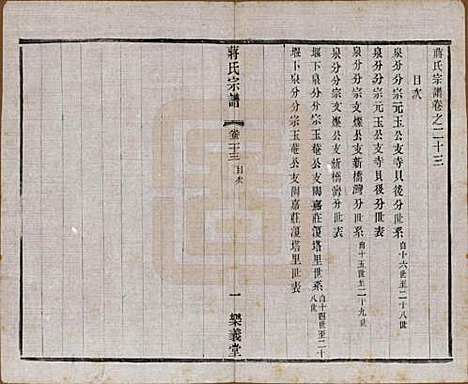 蔣氏宗譜卷之二十三
目次
泉分分宗元玉公支寺貝後分世系自十六世至二十八世
泉分分宗元玉公支寺貝後分世表
泉分分宗支燦公支新橋灣分世系自十五世至二十九世
泉分分宗支燦公支新橋灣分世表
堰下泉分分宗玉菴公支陽嘉莊漠塔里世系自十四世至二十八世
堰下泉分分宗玉菴公支陽嘉莊漠塔里世表
蔣氏宗譜
卷二十三
目次
一
樂義堂